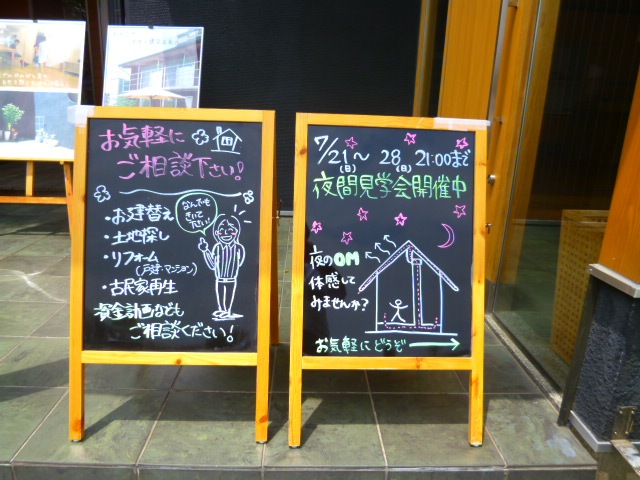 お気軽に
ご相談下さい!
なんでも
きいて
下さい!
・お建替え
・土地探し
・リフォーム
(戸建・マンション)
・古民家再生
資金計画なども
ご相談ください!
7/21〜28 21:00まで
(日) (日)
夜間見学会開催中
夜のOM
体感して
みませんか?
お気軽にどうぞ